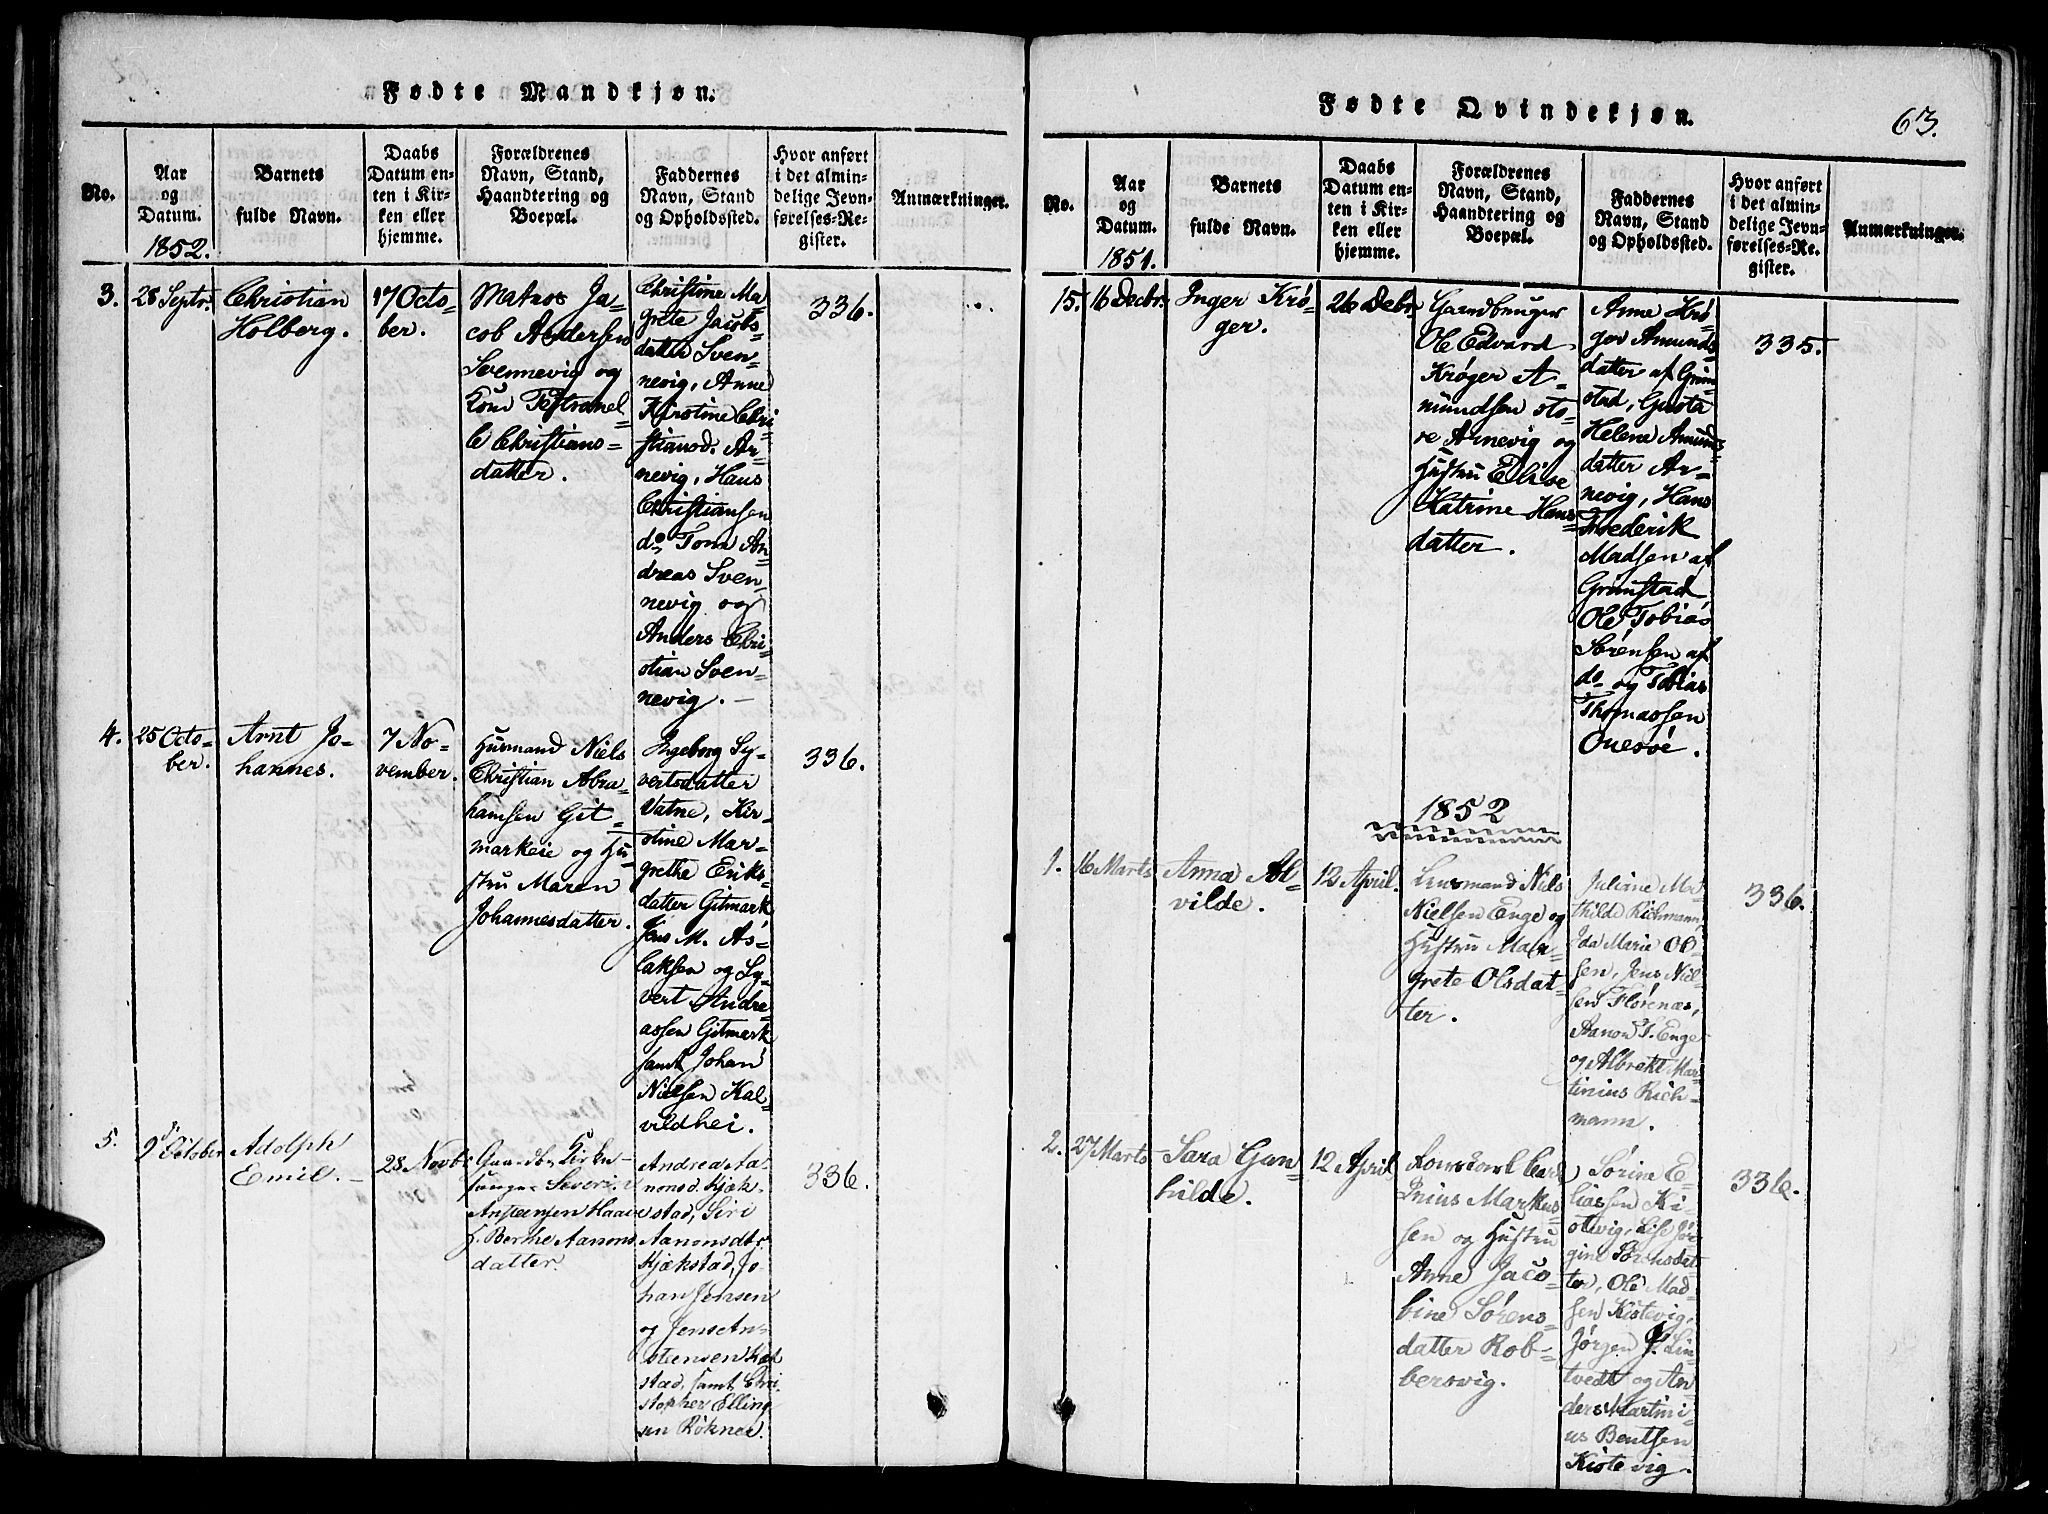 Fødte Mandkjøn.
No.
Aar
og
Datum.
1852.
Barnets
fulde Navn.
Daabs
Datum en-
ten i Kir-
ken eller
hjemme.
Forældrenes
Navn, Stand,
Haandtering og
Boepæl.
Faddernes
Navn, Stand
og Opholdssted.
Hvor anført
i det almin-
delige Jevn-
førelses-Re-
gister.
Anmærkninger.
3.
28 Septr.
Christian
Holberg.
17 Octo-
ber.
Matros Ja-
cob Andersen
Svennevig og
Kone
Christians-
datter.
Christine Ma-
grete Jacobs-
datter Sven-
nevig, Anne
Kirstine Chri-
stiansd. Ar-
nevig, Hans
Christiansen
do, Tom An-
dreas Sven-
nevig og
Anders Chri-
stian Sven-
nevig.
336.
4.
25 Octo-
ber.
Arnt Jo-
hannes.
7 No-
vember.
Husmand Niels
Christian Abra-
hamsen Git-
markeie og Hu-
stru Maren
Johannesdatter.
Ingeborg Sy-
vertsdatter
Vatne, Kir-
stine Mar-
grethe Eriks-
datter Gitmark
Jens M. As-
laksen og Sy-
vert Andre-
assen Gitmark
samt Johan
Nielsen Kal-
vildhei.
336.
5.
9d October
Adolph
Emil.
28 Novbr
Gaardbr. Kirke-
sanger Severin
Anstensen Haaie
h. Berthe Aanons
datter.
Andrea Aa-
nonsd. Kjæk-
stad, Siri
Aanonsdtr.
Kjækstad, Jo-
han Jensen
og Jens An-
steensen Kjæk
stad, samt Chri-
stopher Elling-
sen Røknes.
336.
Fødte Qvindekjøn.
63.
No.
Aar
og
Datum.
1851.
Barnets
fulde Navn.
Daabs
Datum en-
ten i Kir-
ken eller
hjemme.
Forældrenes
Navn, Stand,
Haandtering og
Boepæl.
Faddernes
Navn, Stand
og Opholdssted.
Hvor anført
i det almin-
delige Jevn-
førelses-Re-
gister.
Anmærkninger.
15.
16 Decbr.
Inger Krø-
ger.
26 Debr.
Gaardbruger
Ole Edvard
Krøger A-
mundsen sto-
re Arnevig og
Hustru Elise
Katrine Hans-
datter.
Anne Krø-
ger Amunds-
datter af Grim-
stad, Gusta
Helene Amunds-
datter Ar-
nevig, Hans
Frederik
Madsen af
Grimstad
Ole Tobias
Sørensen af
do og Tobias
Thomassen
Onesøe.
335.
1852
1.
16 Marts
Anna Al-
vilde.
12 April.
Lensmand Niels
Nielsen Enge og
Hustru Mar-
grete Olsdat-
ter.
Juliane Ma-
thilde Richmann,
Ida Marie Ol-
sen, Jens Niel-
sen Florenæs,
Aanon T. Enge
og Albrekt Mar-
tinius Rich-
mann.
336.
2.
27 Marts
Sara Gun-
hilde.
12 April
inius Markus-
sen og Hustru
Anne Jaco-
bine Sørens-
datter Rob-
bersvig.
Sørine E-
liassen Ki-
stevig, Lise Jør-
gine
ter, Ole Mad-
sen Kistevig,
Jørgen J. Lin-
tvedt og An-
ders Martini-
us Bentsen
Kistevig.
336.